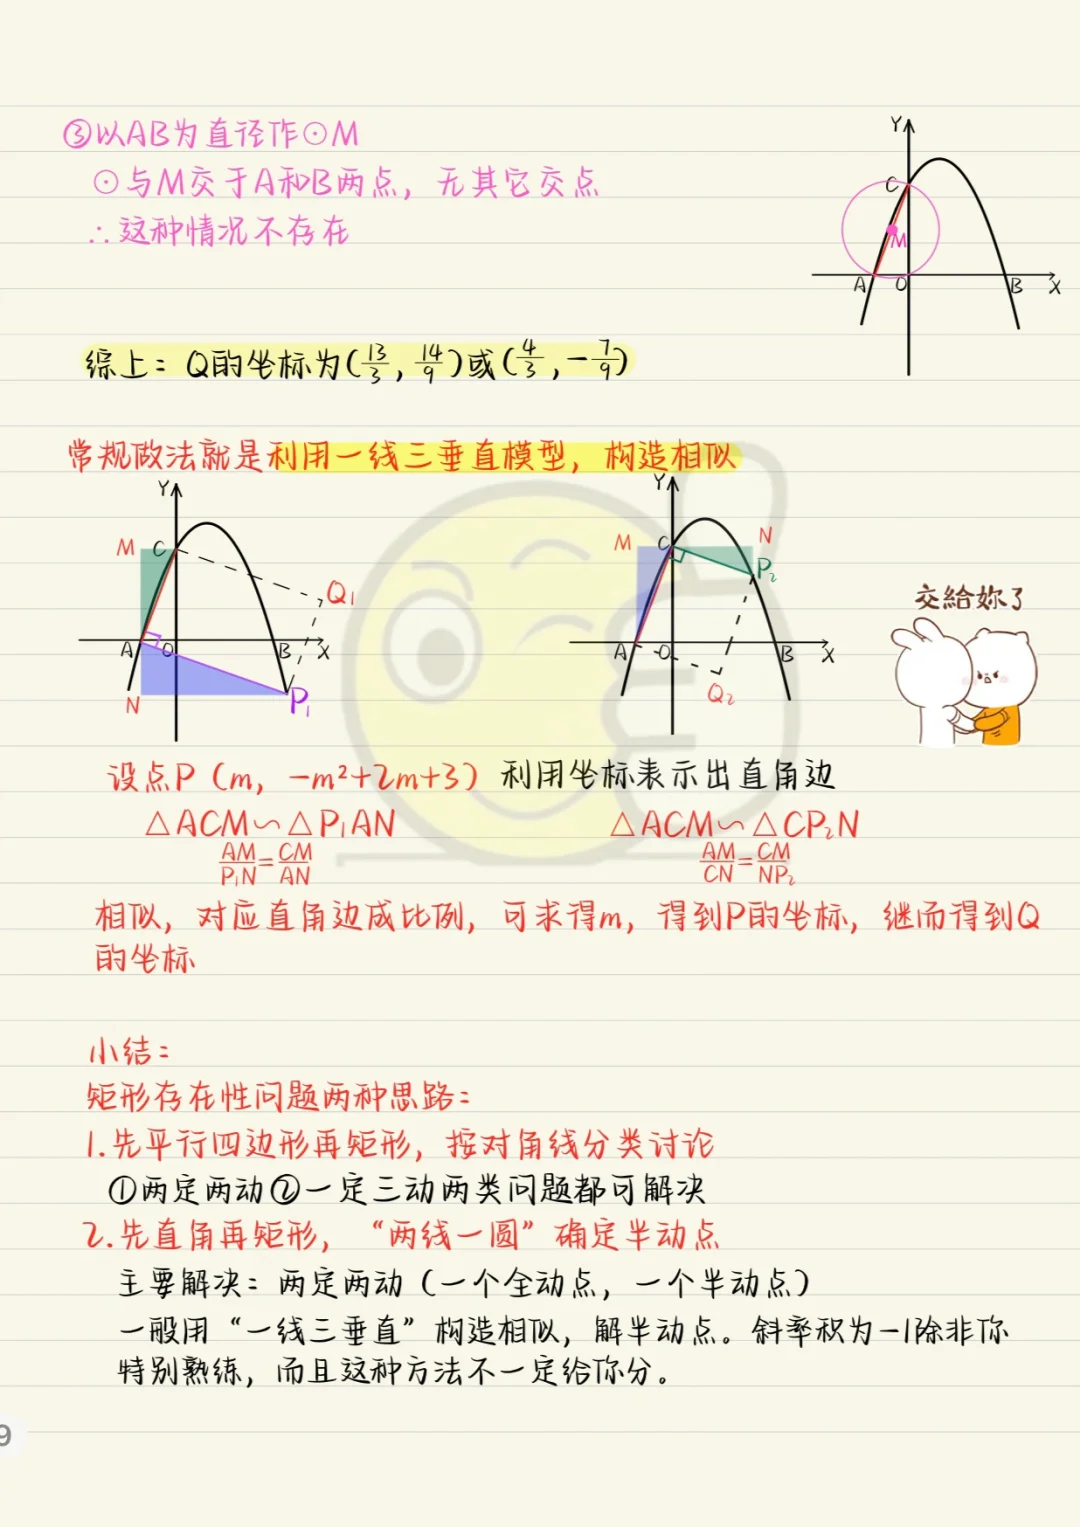 ③以AB为直径作⊙M
⊙与M交于A和B两点，无其它交点
∴这种情况不存在
Y
C
M
A
O
B
X
综上：Q的坐标为(13/3, 14/9)或(4/3, -7/9)
常规做法就是利用一线三垂直模型，构造相似
Y
M
C
Q₁
A
O
B
X
N
P₁
Y
M
C
N
P₂
A
O
B
X
Q₂
交給妳了
设点P（m，-m²+2m+3）利用坐标表示出直角边
△ACM∽△P₁AN
AM/P₁N=CM/AN
△ACM∽△CP₂N
AM/CN=CM/NP₂
相似，对应直角边成比例，可求得m，得到P的坐标，继而得到Q
的坐标
小结：
矩形存在性问题两种思路：
1.先平行四边形再矩形，按对角线分类讨论
①两定两动②一定三动两类问题都可解决
2.先直角再矩形，“两线一圆”确定半动点
主要解决：两定两动（一个全动点，一个半动点）
一般用“一线三垂直”构造相似，解半动点。斜率积为-1除非你
特别熟练，而且这种方法不一定给你分。
9